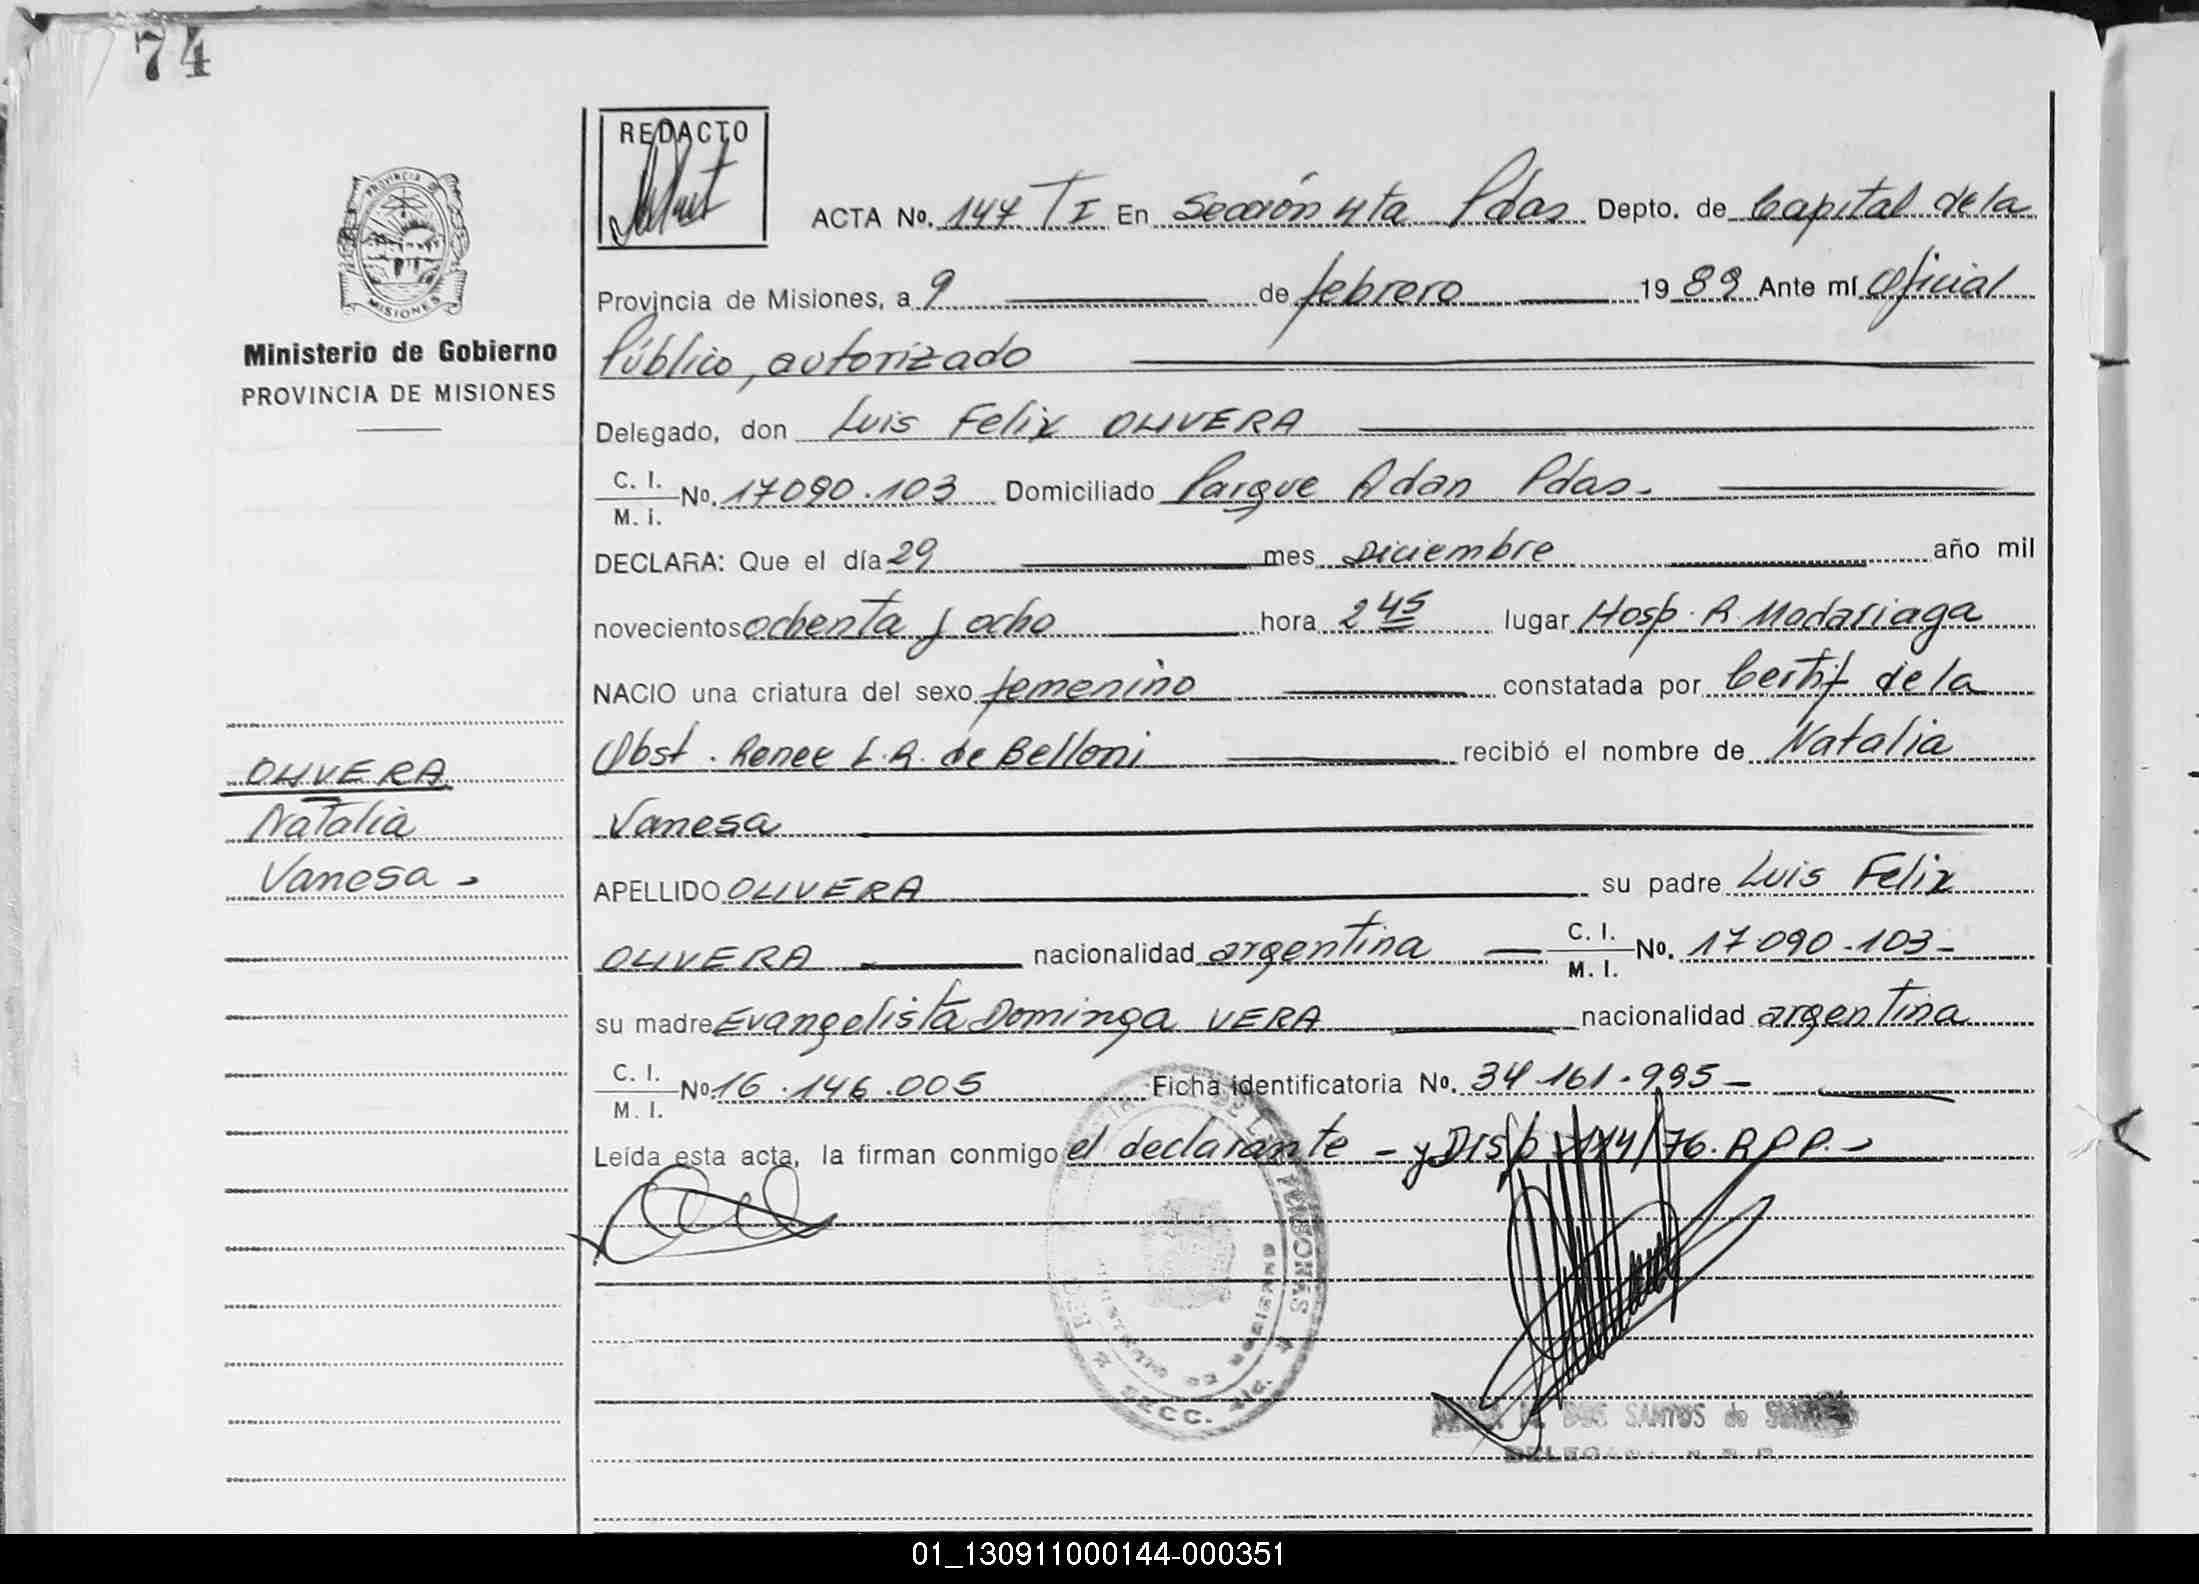 74
REDACTO
ACTA No. 147 TI En Sección 4ta Pdas Depto. de Capital de la
Provincia de Misiones, a 9 de febrero 1989 Ante mí Oficial
Público, autorizado
Delegado, don Luis Felix OLIVERA
C. I.
M. I. No. 17090.103 Domiciliado Parque Adan Pdas.
DECLARA: Que el día 29 mes Diciembre año mil
novecientos ochenta y ocho hora 2 45 lugar Hosp. R. Madariaga
NACIO una criatura del sexo femenino constatada por Certif de la
Obst. Renee L.R. de Belloni recibió el nombre de Natalia
Vanesa
APELLIDO OLIVERA su padre Luis Felix
OLIVERA nacionalidad argentina C. I.
M. I. No. 17.090.103-
su madre Evangelista Dominga VERA nacionalidad argentina
C. I.
M. I. No. 16.146.005 Ficha identificatoria No. 34.161.995-
Leída esta acta, la firman conmigo el declarante - y Disp 114/76.R.P.P.-
PROVINCIA DE
MISIONES
Ministerio de Gobierno
PROVINCIA DE MISIONES
OLIVERA
Natalia
Vanesa.
DE LAS PERSONAS
MINISTERIO DE GOBIERNO
SECC.
DOS SANTOS de
DELEGADA
01_130911000144-000351